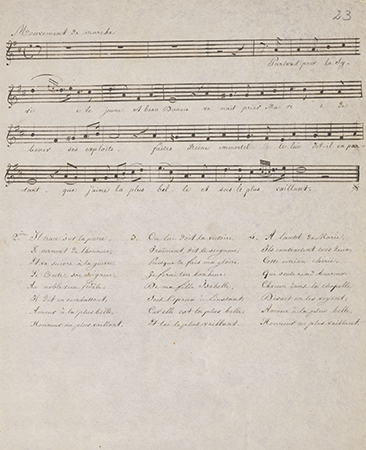 23
Mouvement de marche
Partant pour la Sy-
ri e le jeune et beau Dunois ve nait prier Ma ri e de
bénir ses exploits. faites Reine immortel le lui dit-il en par-
tant. que j'aime la plus bel le et sois le plus vaillant.
2. Il trace sur la pierre,
Le serment de l'honneur,
Et va suivre à la guerre
Le Comte son seigneur
Au noble vœu fidèle
Il dit en combattant,
Amour à la plus belle,
Honneur au plus vaillant.
3. On lui doit la victoire
Vraiment, dit le seigneur,
Puisque tu fais ma gloire
Je ferai ton bonheur
De ma fille Isabelle,
Sois l'époux à l'instant,
Car elle est la plus belle
Et toi le plus vaillant.
4. A l'autel de Marie,
Ils contractent tous deux
Cette union chérie,
Qui seule rend heureux
Chacun dans la chapelle
Disait en les voyant,
Amour à la plus belle
Honneur au plus vaillant.